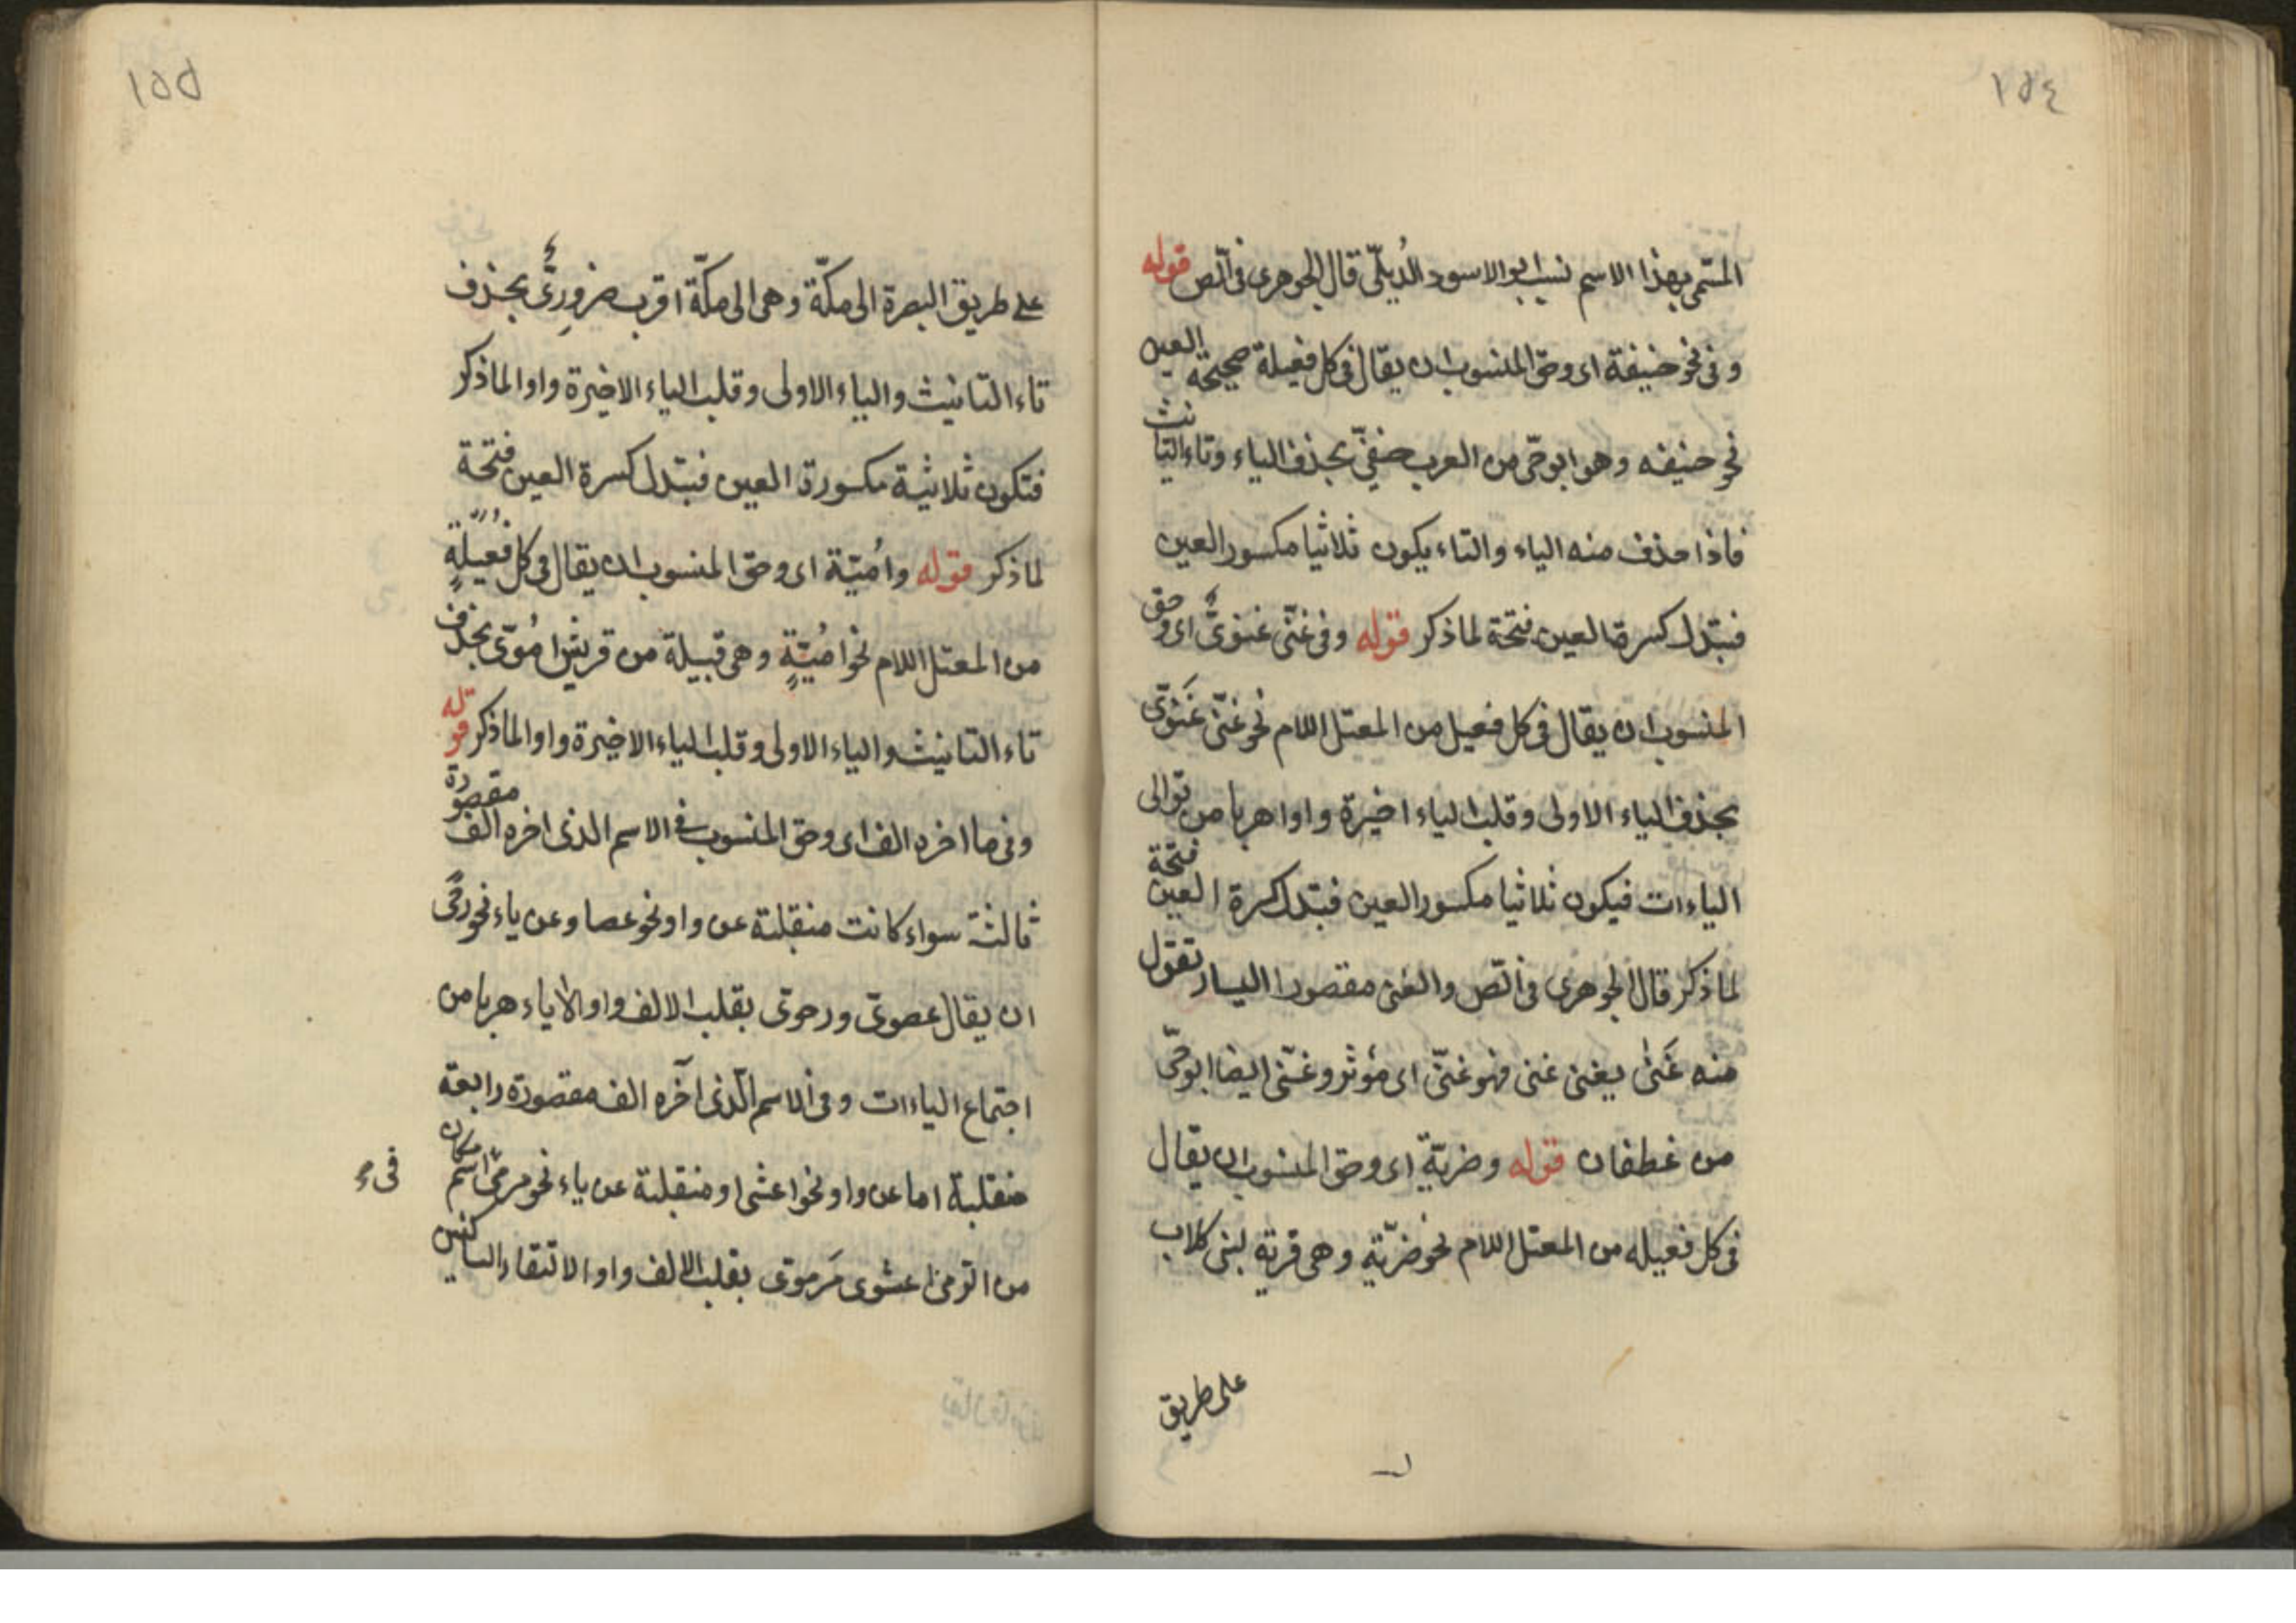 ١٥٤
المسمى بهذا الاسم نسب ابو الاسود الدُيلّى قال الجوهرى فى الص قوله
وفى نحو حنيفة اى وحق المنسوب ان يقال فى كل فعيلة صحيحة العين
نحو حنيفه وهو ابو حىّ من العرب حنفىّ بحذف الياء وتاء التانث
فاذا حذف منه الياء والتاء يكون ثلاثيا مكسور العين
فبتدل كسرة العين فتحة لما ذكر قوله وفى غنىّ غنوىٌّ اى وحق
المنسوب ان يقال فى كل فعيل من المعتل اللام نحو غنىّ غَنَوىّ
بحذف الياء الاولى وقلب الياء اخيرة واوا هربا من توالى
الياءات فيكون ثلاثيا مكسور العين فبتدل كسرة العين فتحة
لما ذكر قال الجوهرى فى الص والغنى مقصورا اليسار تقول
منه غَنىٰ يغنى غنى فهو غنىّ اى مؤثر وغنىّ ايضا ابو حىّ
من غطفان قوله وضريّة اى وحق المنسوب ان يقال
فى كل فعيله من المعتل اللام نحو ضريّةٍ وهى قرية لبنى كلاب
على طريق
١٥٥
على طريق البصرة الى مكّة وهى الى مكّة اقرب ضرورِىٌّ بحذف
تاء التانيث والياء الاولى وقلب الياء الاخيرة واوا لما ذكر
فتكون ثلاثية مكسورة العين فبتدل كسرة العين فتحة
لما ذكر قوله واُميّة اى وحق المنسوب ان يقال فى كل فُعيلةٍ
من المعتل اللام نحو اُميّةٍ وهى قبيلة من قريش اُموىّ بحذف
تاء التانيث والياء الاولى وقلب الياء الاخيرة واوا لما ذكر قوله
وفى ما اخره الف اى وحق المنسوب فى الاسم الذى اخره الف مقصورة
ثالثة سواء كانت منقلبة عن واو نحو عصا وعن ياء نحو رحًى
ان يقال عصوىّ ورحوى بقلب الالف واوا لا ياء هربا من
اجتماع الياءات وفى الاسم الّذى آخره الف مقصورة رابعة
منقلبة اما عن واو نحو اعشى او منقلبة عن ياء نحو مرمًى اسم مكان
من الرمى اعشوى مَرموى بقلب الالف واوا لالتقاء الساكنين